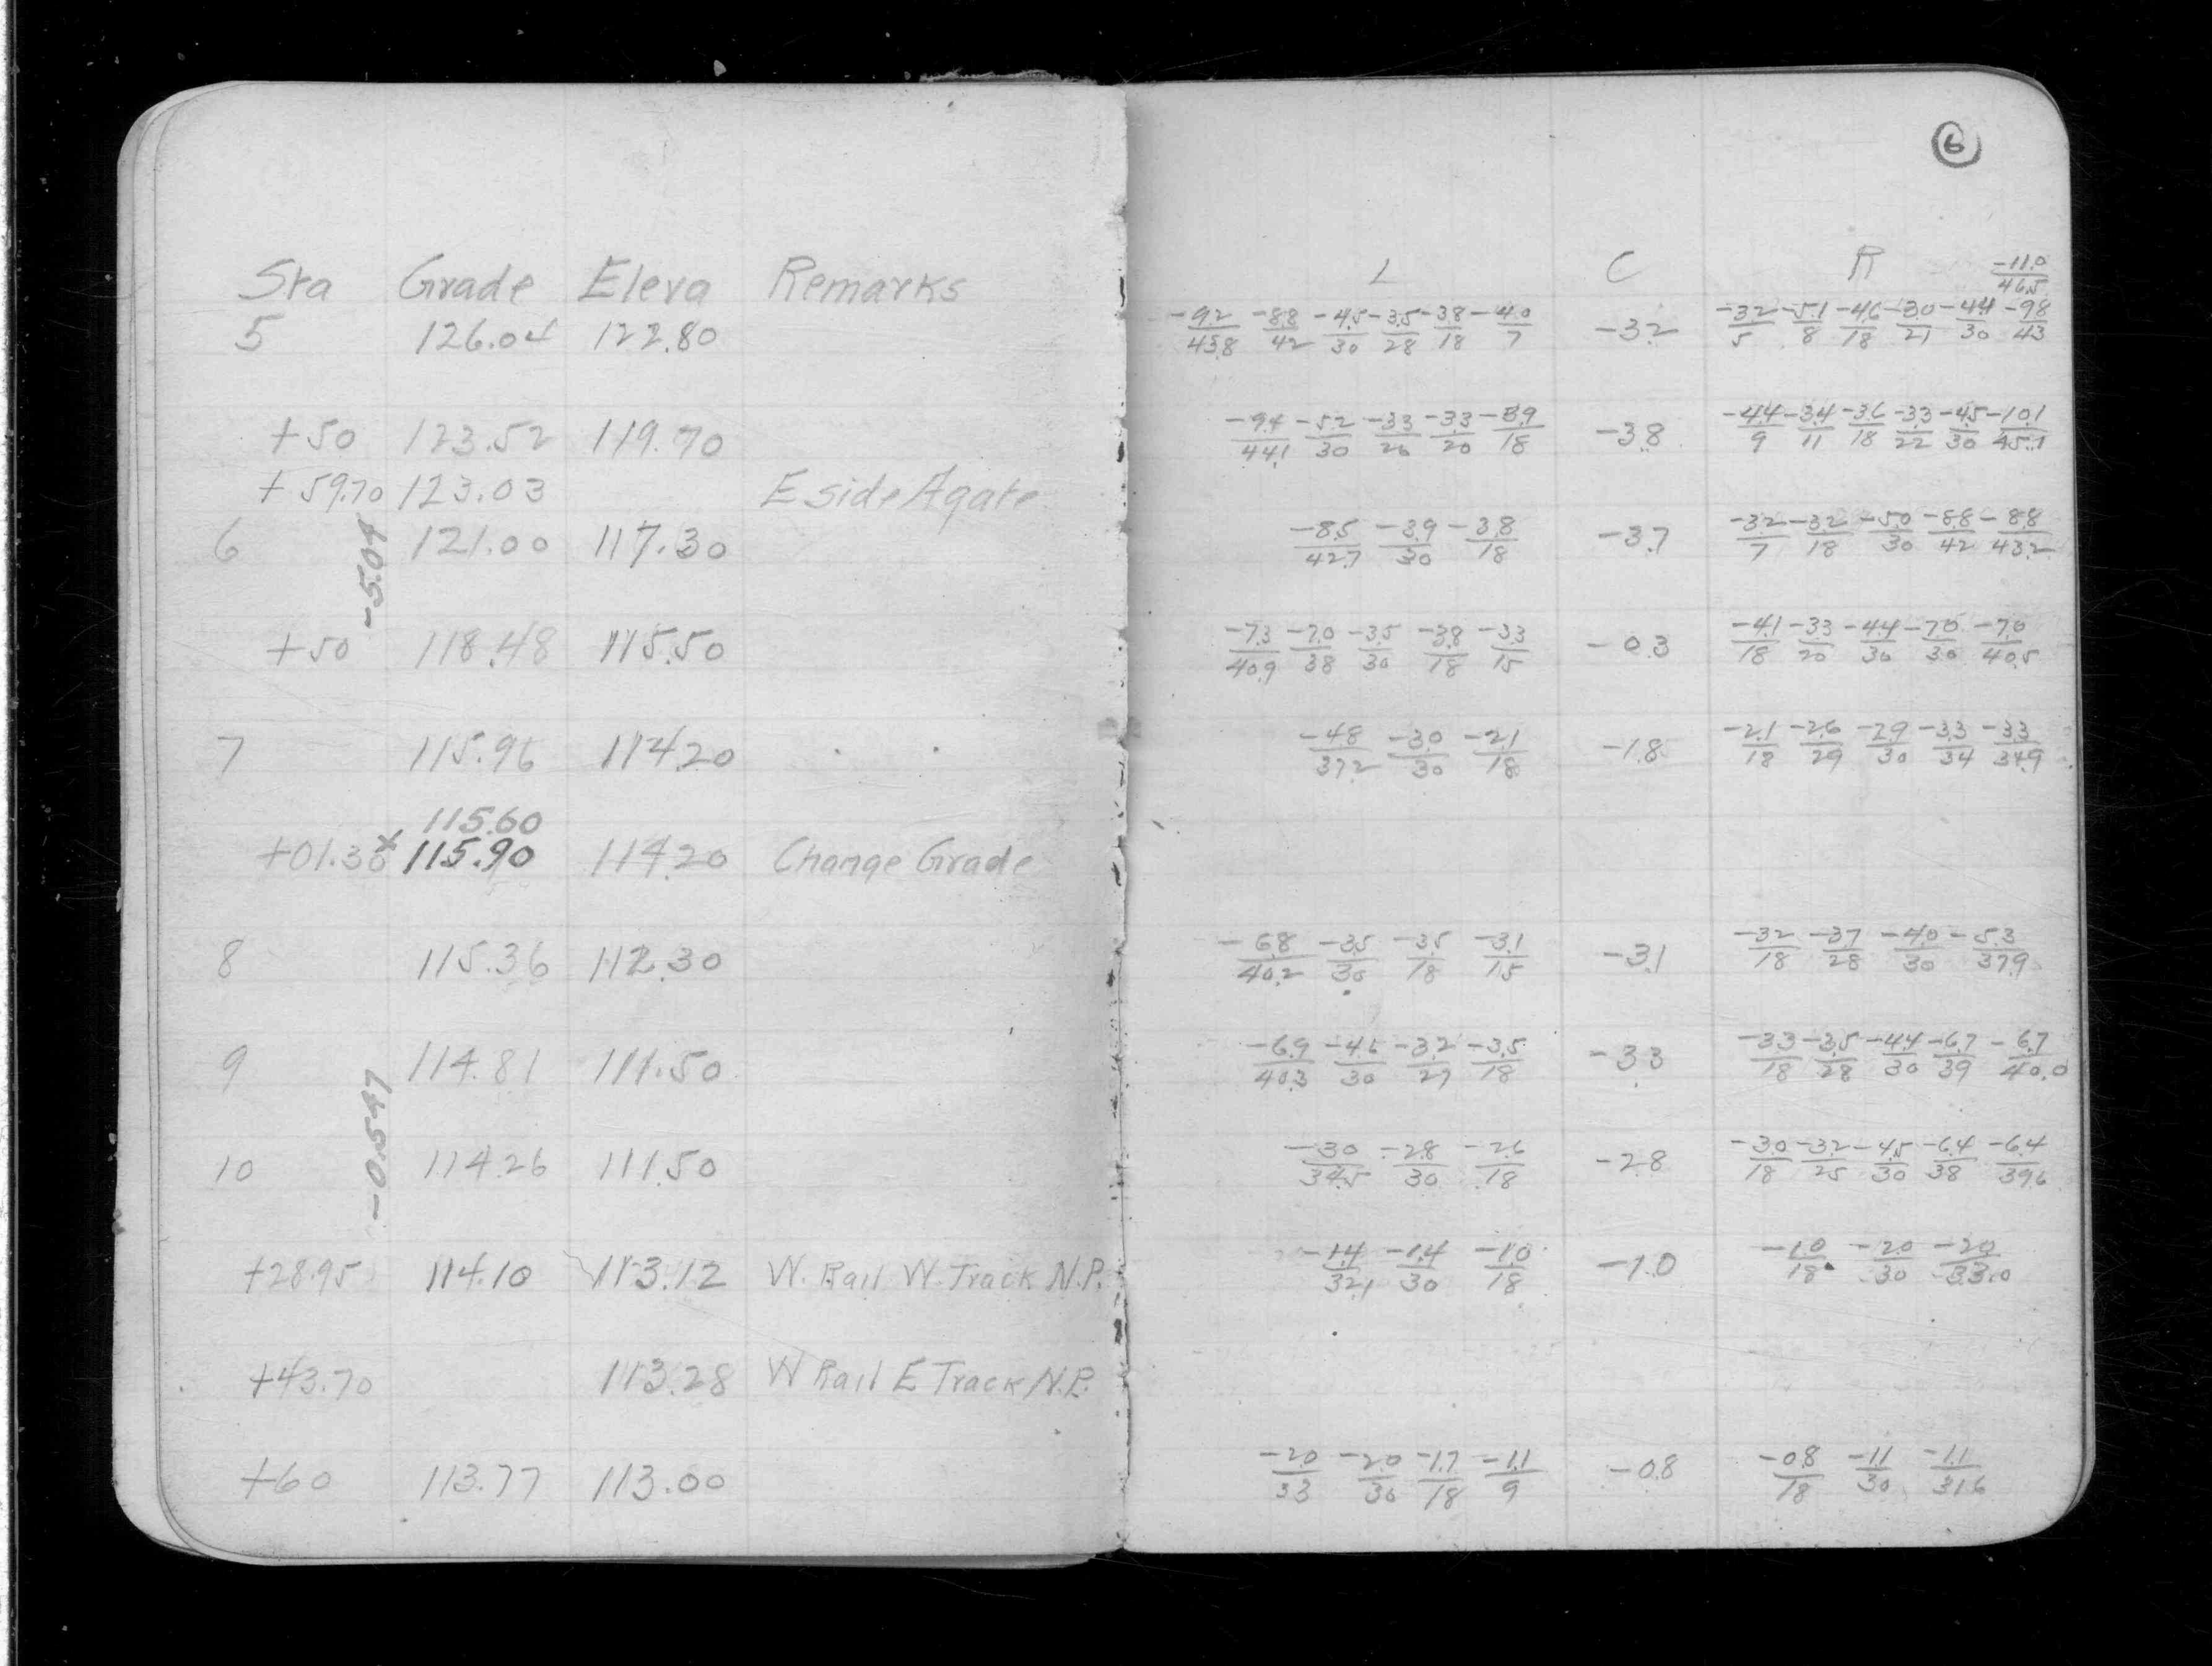 Sta Grade Eleva Remarks
5 126.04 122.80
+50 123.52 119.70
+59.70 123.03 E side Agate
6 121.00 117.30
-5.04
+50 118.48 115.50
7 115.96 114.20
115.60
+01.30 x 115.90 114.20 Change Grade
8 115.36 112.30
9 114.81 111.50
-0.547
10 114.26 111.50
+28.95 114.10 113.12 W. Rail W. Track N.P.
+43.70 113.28 W Rail E Track N.P.
+60 113.77 113.00
6
L C R -11.0/46.5
-9.2/43.8 -8.8/42 -4.5/30 -3.5/28 -3.8/18 -4.0/7 -3.2 -3.2/5 -5.1/8 -4.6/18 -3.0/21 -4.4/30 -9.8/43
-9.4/44.1 -5.2/30 -3.3/26 -3.3/20 -3.9/18 -3.8 -4.4/9 -3.4/11 -3.6/18 -3.3/22 -4.5/30 -10.1/45.1
-8.5/42.7 -3.9/30 -3.8/18 -3.7 -3.2/7 -3.2/18 -5.0/30 -8.8/42 -8.8/43.2
-7.3/40.9 -7.0/38 -3.5/30 -3.8/18 -3.3/15 -0.3 -4.1/18 -3.3/20 -4.4/30 -7.0/30 -7.0/40.5
-4.8/37.2 -3.0/30 -2.1/18 -1.8 -2.1/18 -2.6/29 -2.9/30 -3.3/34 -3.3/34.9
-6.8/40.2 -3.5/30 -3.5/18 -3.1/15 -3.1 -3.2/18 -3.7/28 -4.0/30 -5.3/37.9
-6.9/40.3 -4.6/30 -3.2/27 -3.5/18 -3.3 -3.3/18 -3.5/28 -4.4/30 -6.7/39 -6.7/40.0
-3.0/34.5 -2.8/30 -2.6/18 -2.8 -3.0/18 -3.2/25 -4.5/30 -6.4/38 -6.4/39.6
-1.4/32.1 -1.4/30 -1.0/18 -1.0 -1.0/18 -2.0/30 -2.0/33.0
-2.0/33 -2.0/30 -1.7/18 -1.1/9 -0.8 -0.8/18 -1.1/30 -1.1/31.6